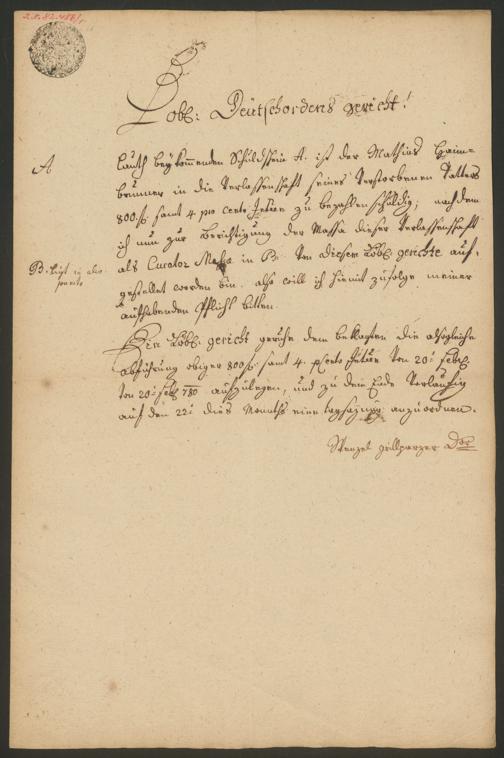 Löbl: Deütschordens gericht!
A
Lauth beykommenden Schuldschein A. ist der Mathias Haim=
brunner in die Verlassenschaft seines Verstorbenen Vatters
800.f. samt 4 pro cento Intreen zu bezahlen schuldig; nachdem
ich nun zur Berichtigung der Massa dieser Verlassenschaft
B. liegt in alio
als Curator Massa in B. Von diesem Löbl. gerichte auf=
gestellet worden bin. also will ich hiemit zufolge meiner
aufhabenden Pflicht bitten.
Ein Löbl. gericht geruhe dem beklagten die alsogleiche
abführung obiger 800 f. samt 4. pcento Intreen Von 20t febr.
780 aufzulegen, und zu dem Ende Vorläufig
auf den 22t dies Monaths eine tagsazung anzuordnen.
Wenzel grillparzer Dor